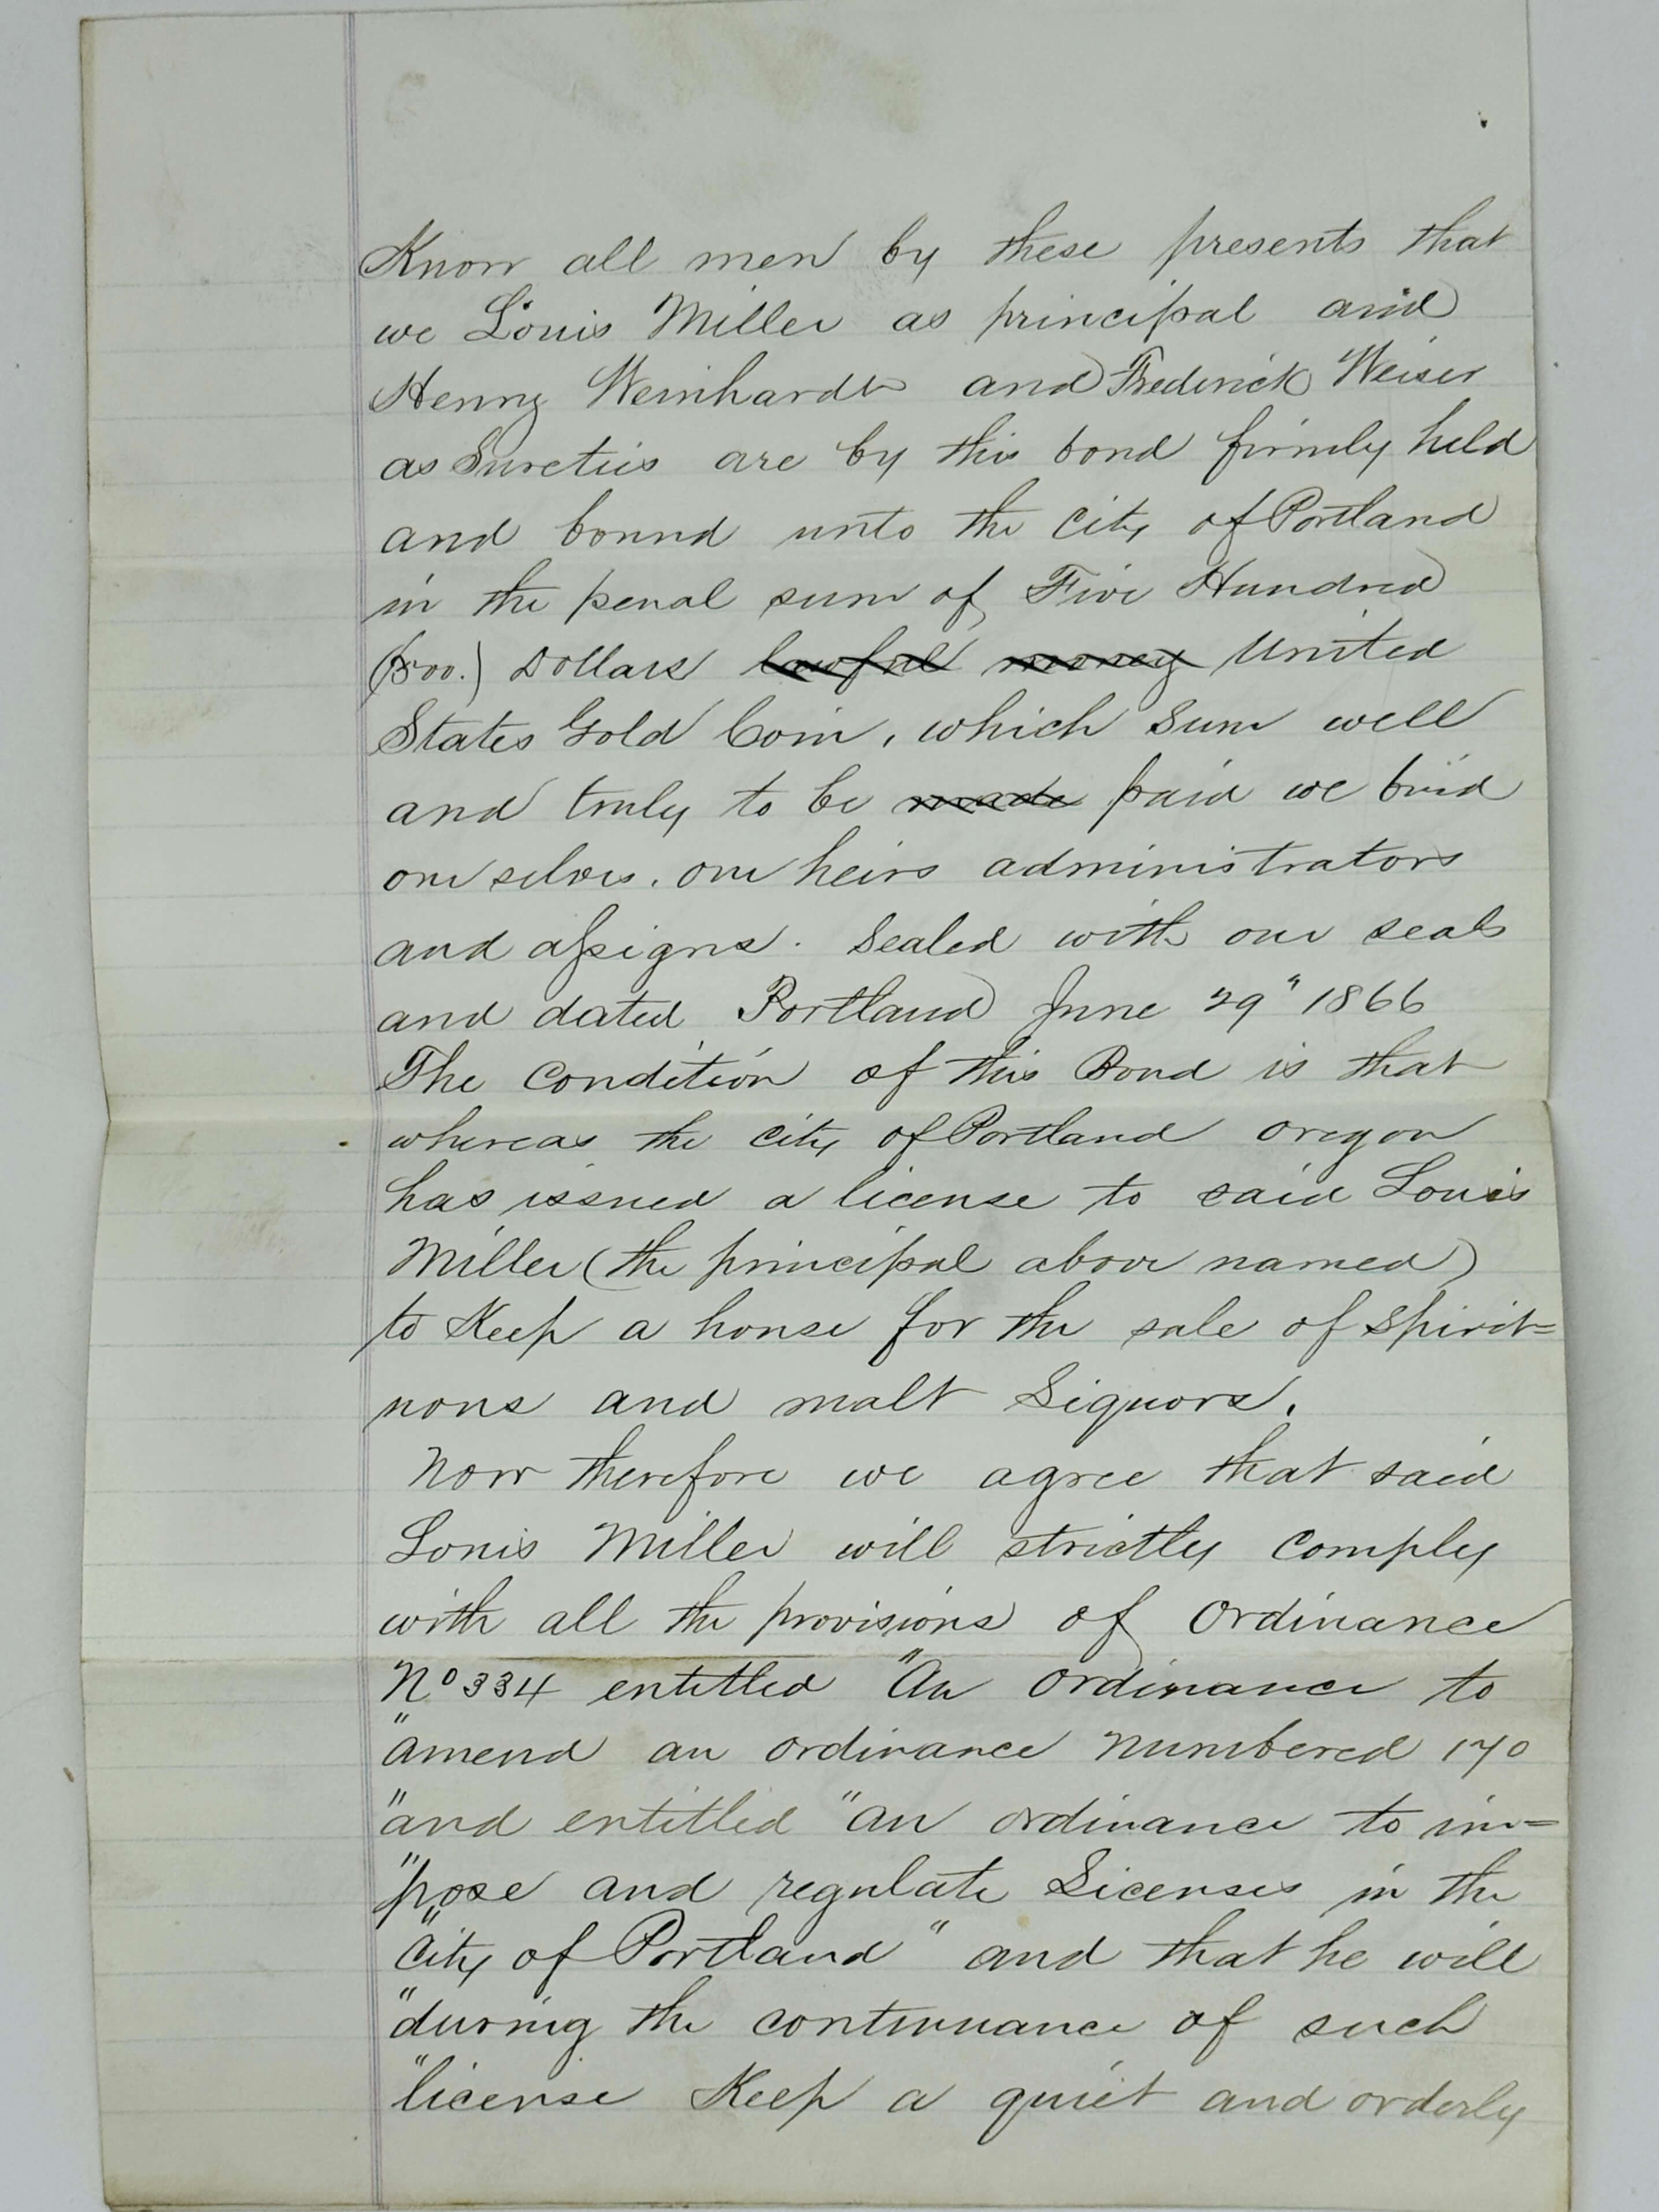 Know all men by these presents that
we Louis Miller as principal and
Henry Weinhardt and Frederick Weiser
as Sureties are by this bond firmly held
and bound unto the City of Portland
in the penal sum of Five Hundred
(500.) Dollars lawful money United
States Gold Coin, which Sum well
and truly to be made paid we bind
our selves. our heirs administrators
and assigns. Sealed with our seals
and dated Portland June 29" 1866
The Condition of this Bond is that
whereas the City of Portland Oregon
has issued a license to said Louis
Miller (the principal above named)
to Keep a house for the sale of Spirit=
uous and malt Liquors.
Now therefore we agree that said
Louis Miller will strictly Comply
with all the provisions of Ordinance
No 334 entitled "An Ordinance to
"amend an ordinance Numbered 170
"and entitled "an ordinance to im=
"pose and regulate Licenses in the
"City of Portland" and that he will
"during the continuance of such
"license Keep a quiet and orderly